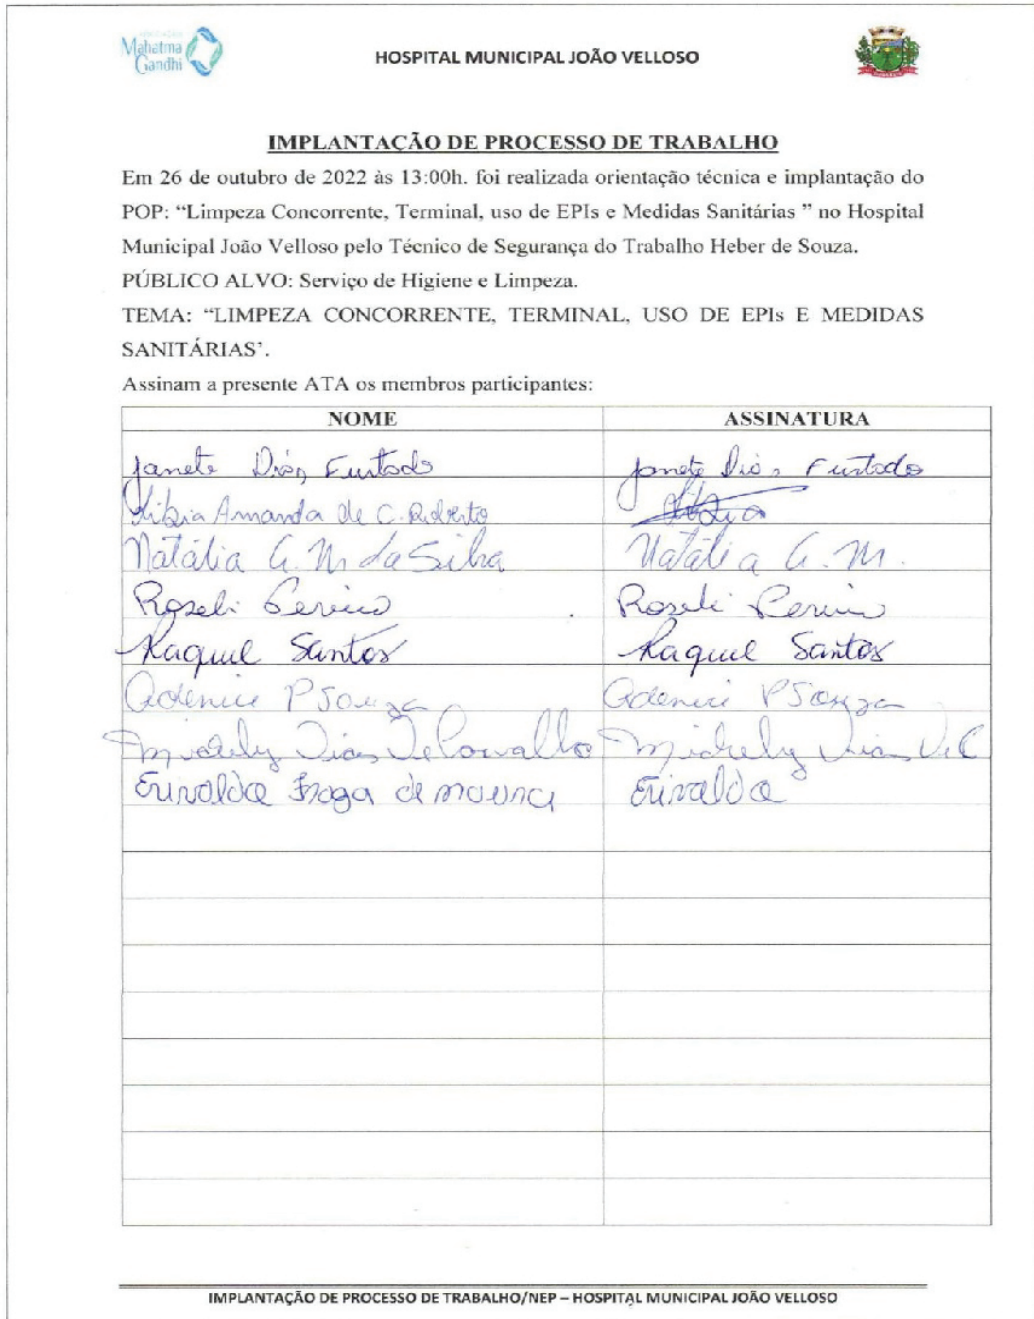 Mahatma
Gandhi
HOSPITAL MUNICIPAL JOÃO VELLOSO
IMPLANTAÇÃO DE PROCESSO DE TRABALHO
Em 26 de outubro de 2022 às 13:00h. foi realizada orientação técnica e implantação do
POP: “Limpeza Concorrente, Terminal, uso de EPIs e Medidas Sanitárias ” no Hospital
Municipal João Velloso pelo Técnico de Segurança do Trabalho Heber de Souza.
PÚBLICO ALVO: Serviço de Higiene e Limpeza.
TEMA: “LIMPEZA CONCORRENTE, TERMINAL, USO DE EPIs E MEDIDAS
SANITÁRIAS’.
Assinam a presente ATA os membros participantes:
NOME ASSINATURA
Janete Dias Furtado Janete Dias Furtado
Amanda de C.
Natália G. M da Silva Natália G. M.
Roseli Roseli
Raquel Santos Raquel Santos
Adenice P Souza Adenice P Souza
Michely Dias De Carvalho Michely Dias De C
Erivalda Fraga de moura Erivalda
IMPLANTAÇÃO DE PROCESSO DE TRABALHO/NEP – HOSPITAL MUNICIPAL JOÃO VELLOSO